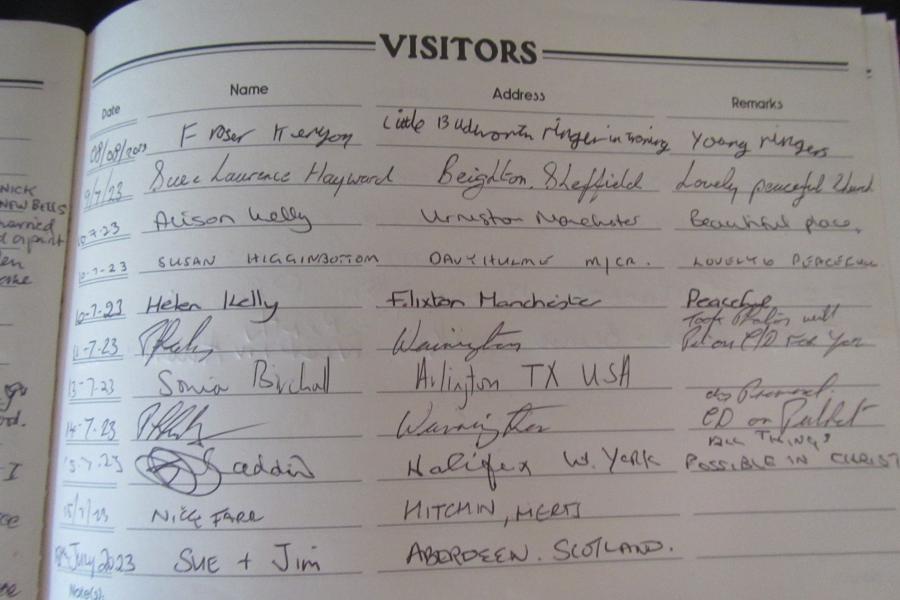 VISITORS
Date Name Address Remarks
08/09/2023 Fraser Kenyon Little Budworth ringer in training Young ringers
9/7/23 Sue & Laurence Hayward Beighton. Sheffield Lovely peaceful Church
10.7.23 Alison Kelly Urmston Manchester Beautiful place.
10-7-23 SUSAN HIGGINBOTTOM DAVYHULME M/CR. LOVELY & PEACEFUL
10-7-23 Helen Kelly Flixton Manchester Peaceful
Took Photos will
11-7.23 Warrington Put on C/D For You
13-7-23 Sonia Birchall Arlington TX USA
as Promised
14-7-23 Warrington CD on Pulpit
ALL THINGS
15.7.23 Halifax W. York POSSIBLE IN CHRIST
15/7/23 NICK FARR HITCHIN, HERTS
July 2023 SUE + Jim ABERDEEN. SCOTLAND.
Note(s):
NICK
NEW BELLS
married